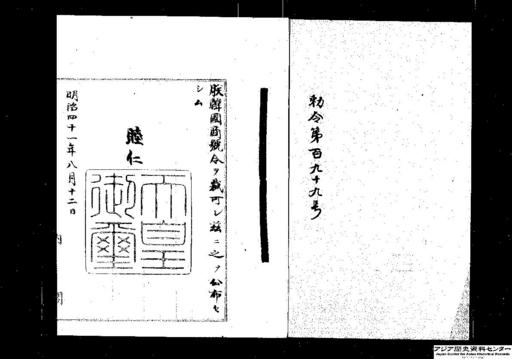 勅令第百九十九号
朕韓國商號令ヲ裁可シ玆ニ之ヲ公布セ
シム
睦仁
天皇
御璽
明治四十一年八月十二日
内閣
アジア歴史資料センター
Japan Center for Asian Historical Records